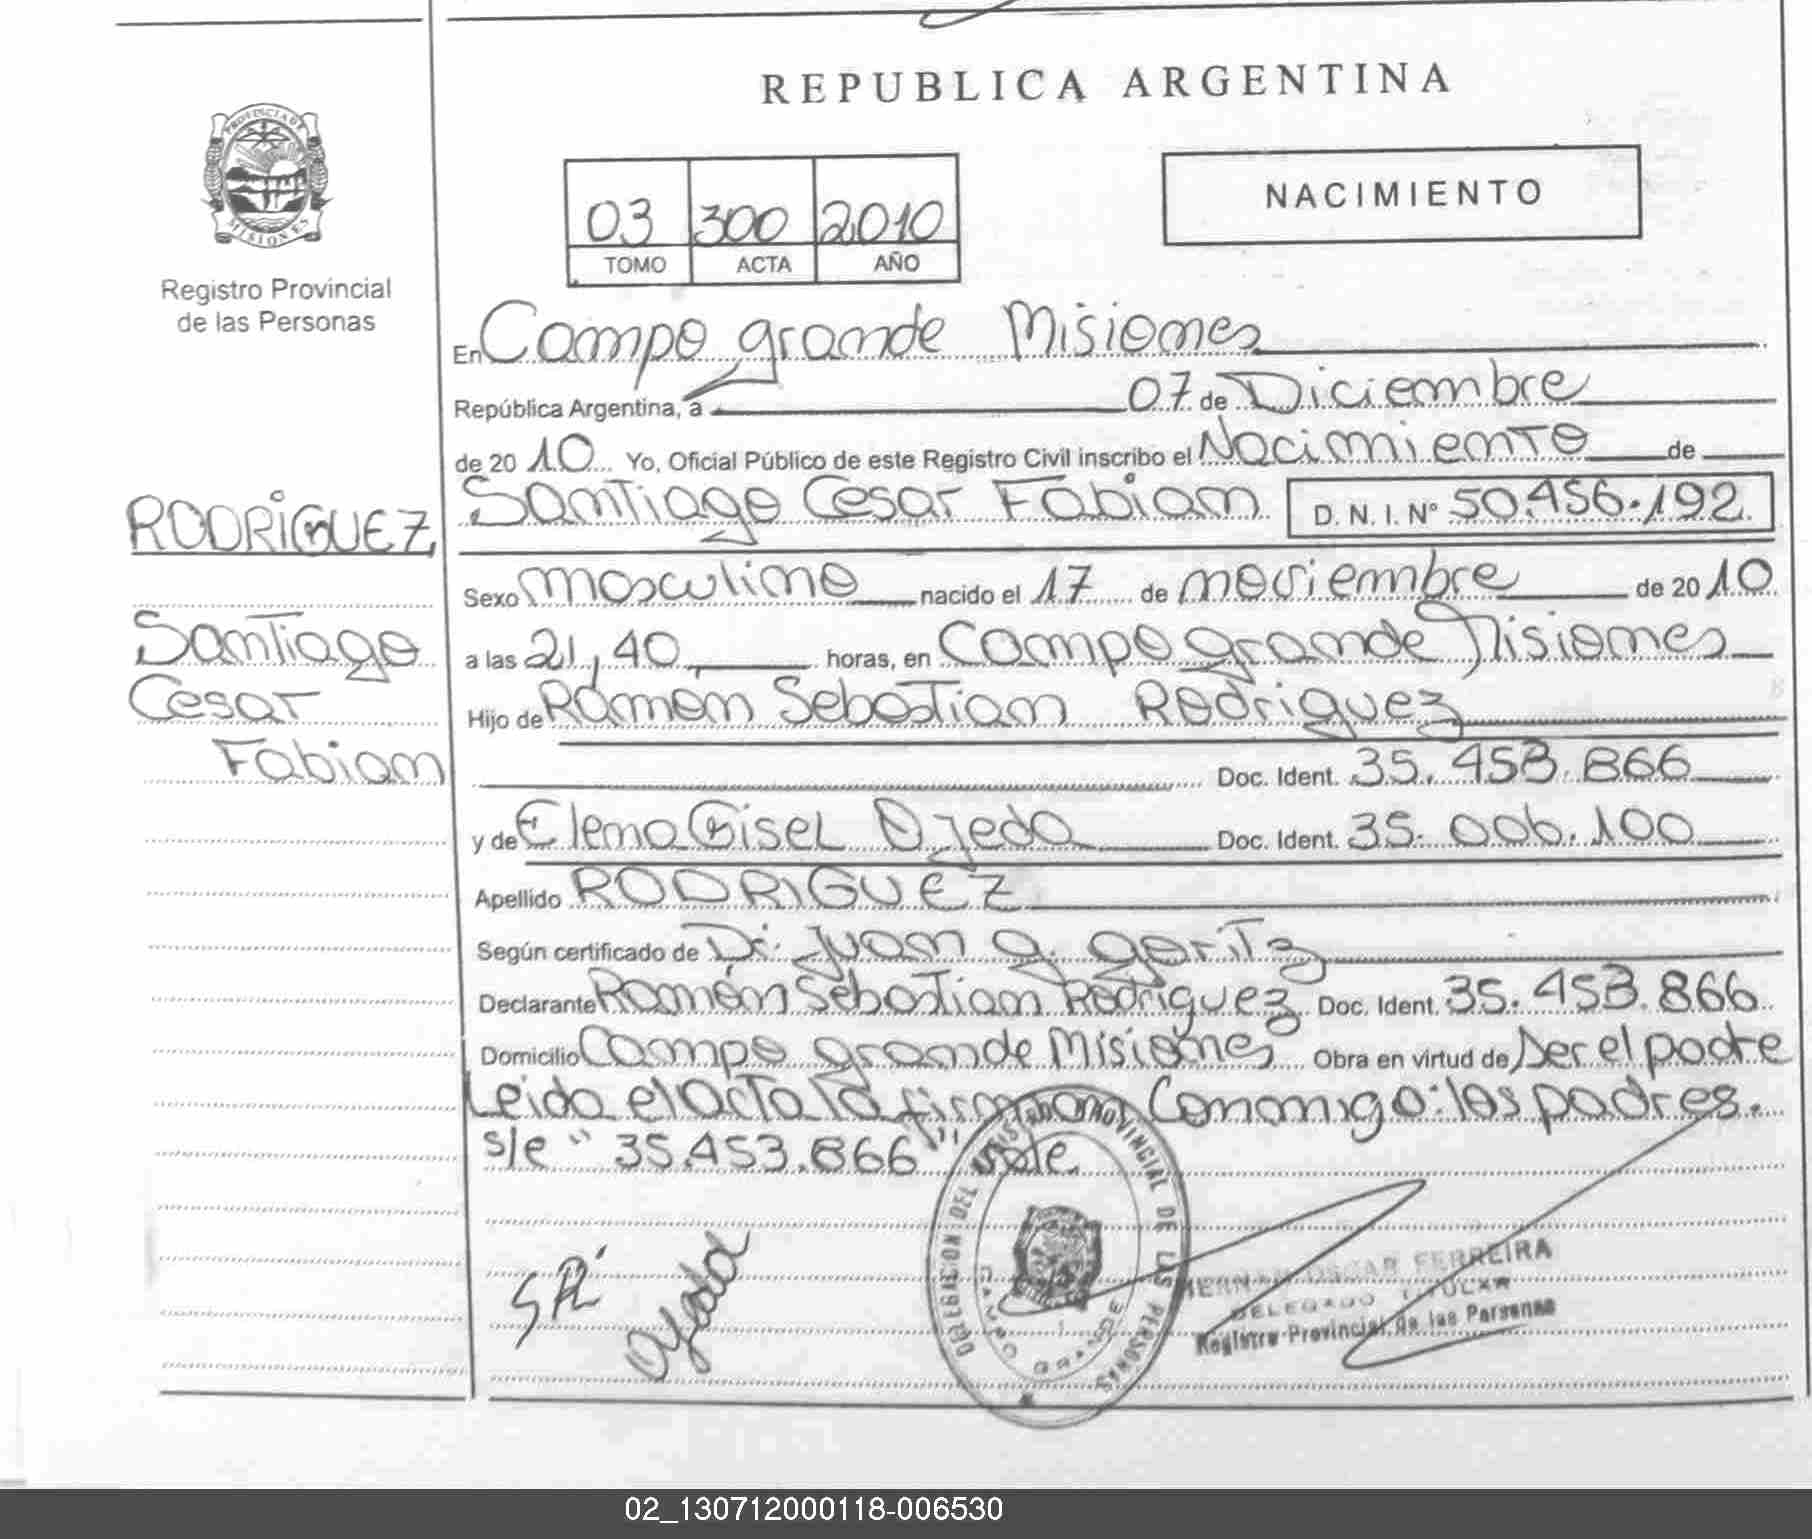 REPUBLICA ARGENTINA
PROVINCIA DE MISIONES
Registro Provincial
de las Personas
03 300 2010
TOMO ACTA AÑO
NACIMIENTO
En Campo grande Misiones
República Argentina, a 07 de Diciembre
de 2010 Yo, Oficial Público de este Registro Civil inscribo el Nacimiento de
Santiago Cesar Fabian D. N. I. N° 50.456.192
RODRIGUEZ,
Santiago
Cesar
Fabian
Sexo masculino nacido el 17 de noviembre de 2010
a las 21,40 horas, en Campo grande Misiones
Hijo de Ramon Sebastian Rodriguez
Doc. Ident. 35.453.866
y de Elena Gisel Ojeda Doc. Ident. 35.006.100
Apellido RODRIGUEZ
Según certificado de Dr. Juan G. Goritz
Declarante Ramón Sebastian Rodriguez Doc. Ident. 35.453.866
Domicilio Campo grande Misiones Obra en virtud de Ser el padre
Leida el acta la firman Conmigo: los padres.
s/e "35.453.866" Vale
DELEGACION DEL REGISTRO PROVINCIAL DE LAS PERSONAS
CAMPO GRANDE
HERNAN OSCAR FERREIRA
DELEGADO TITULAR
Registro Provincial de las Personas
02_130712000118-006530